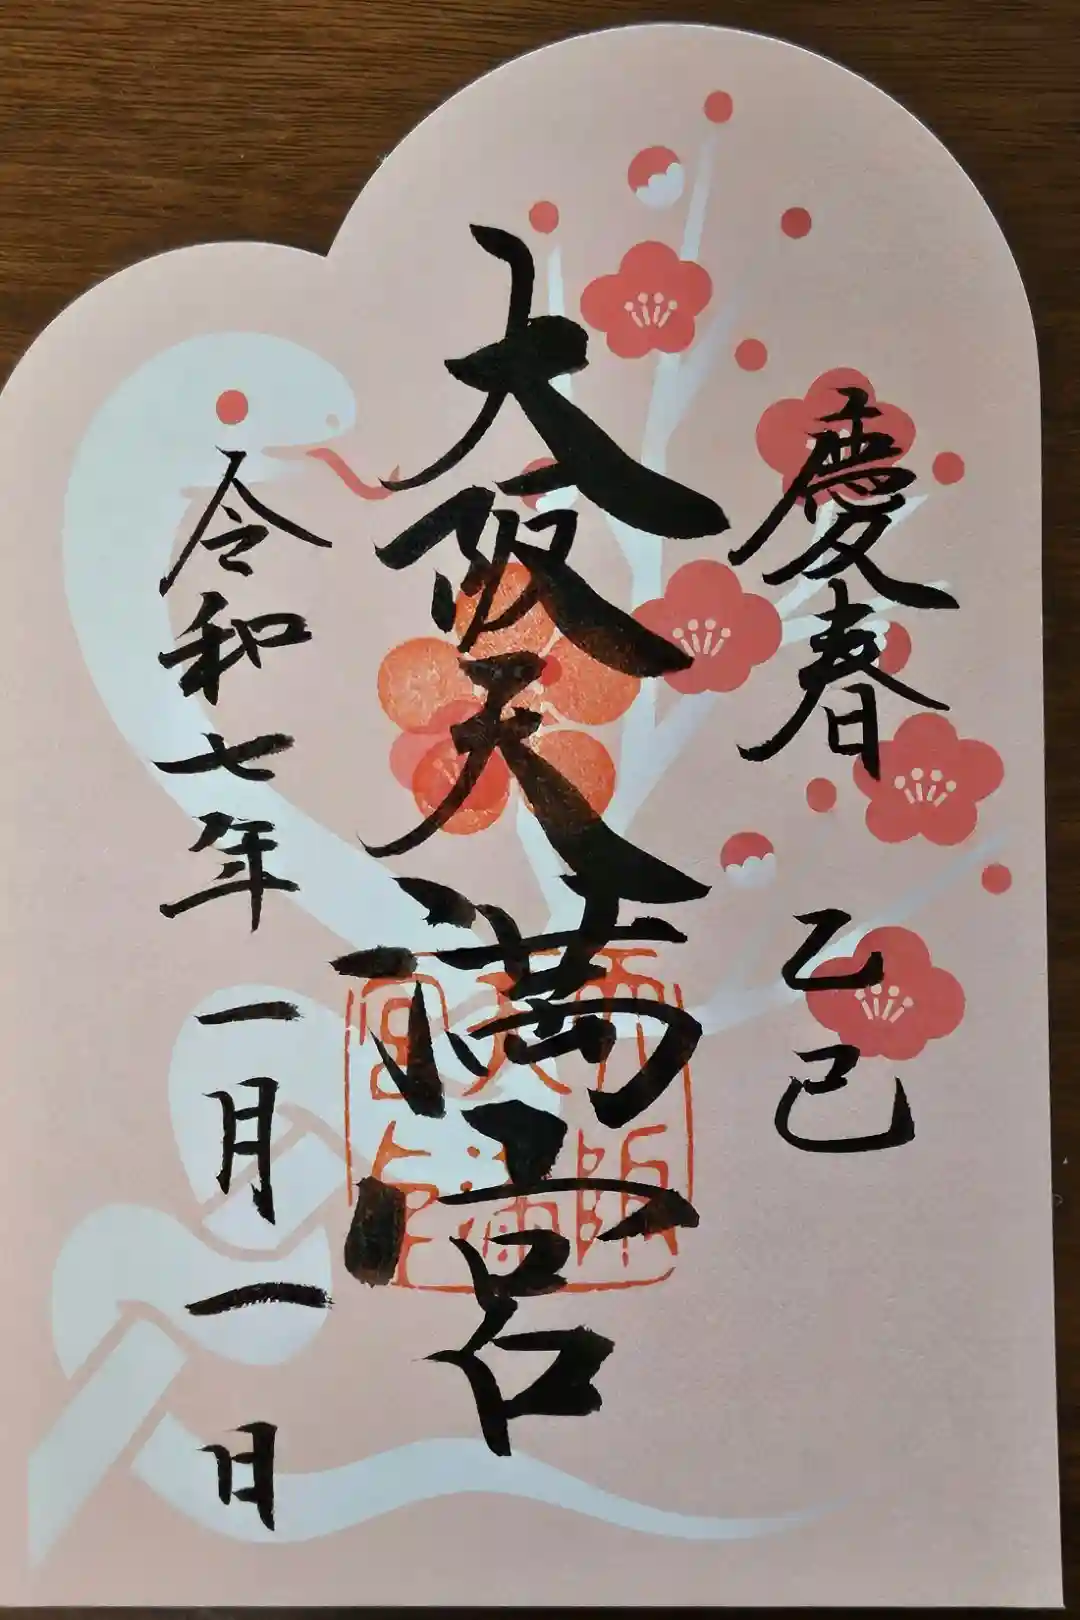 慶春 乙巳
大阪天満宮
令和七年一月一日